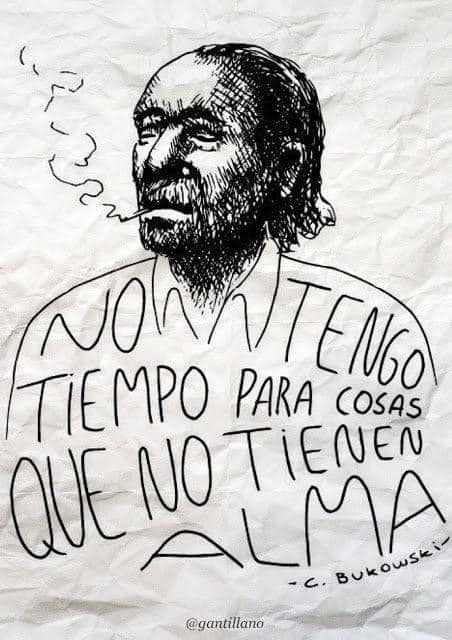 NO TENGO
TIEMPO PARA COSAS
QUE NO TIENEN
ALMA
- C. BUKOWSKI -
@gantillano